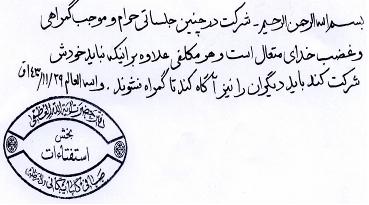 بسم الله الرحمن الرحیم - شرکت در چنین جلساتی حرام و موجب گمراهی
و غضب خدای متعال است و هر مکلفی علاوه بر اینکه نباید خودش
شرکت کند باید دیگران را نیز آگاه کند تا گمراه نشوند. والله العالم
بخش
استفتاءات